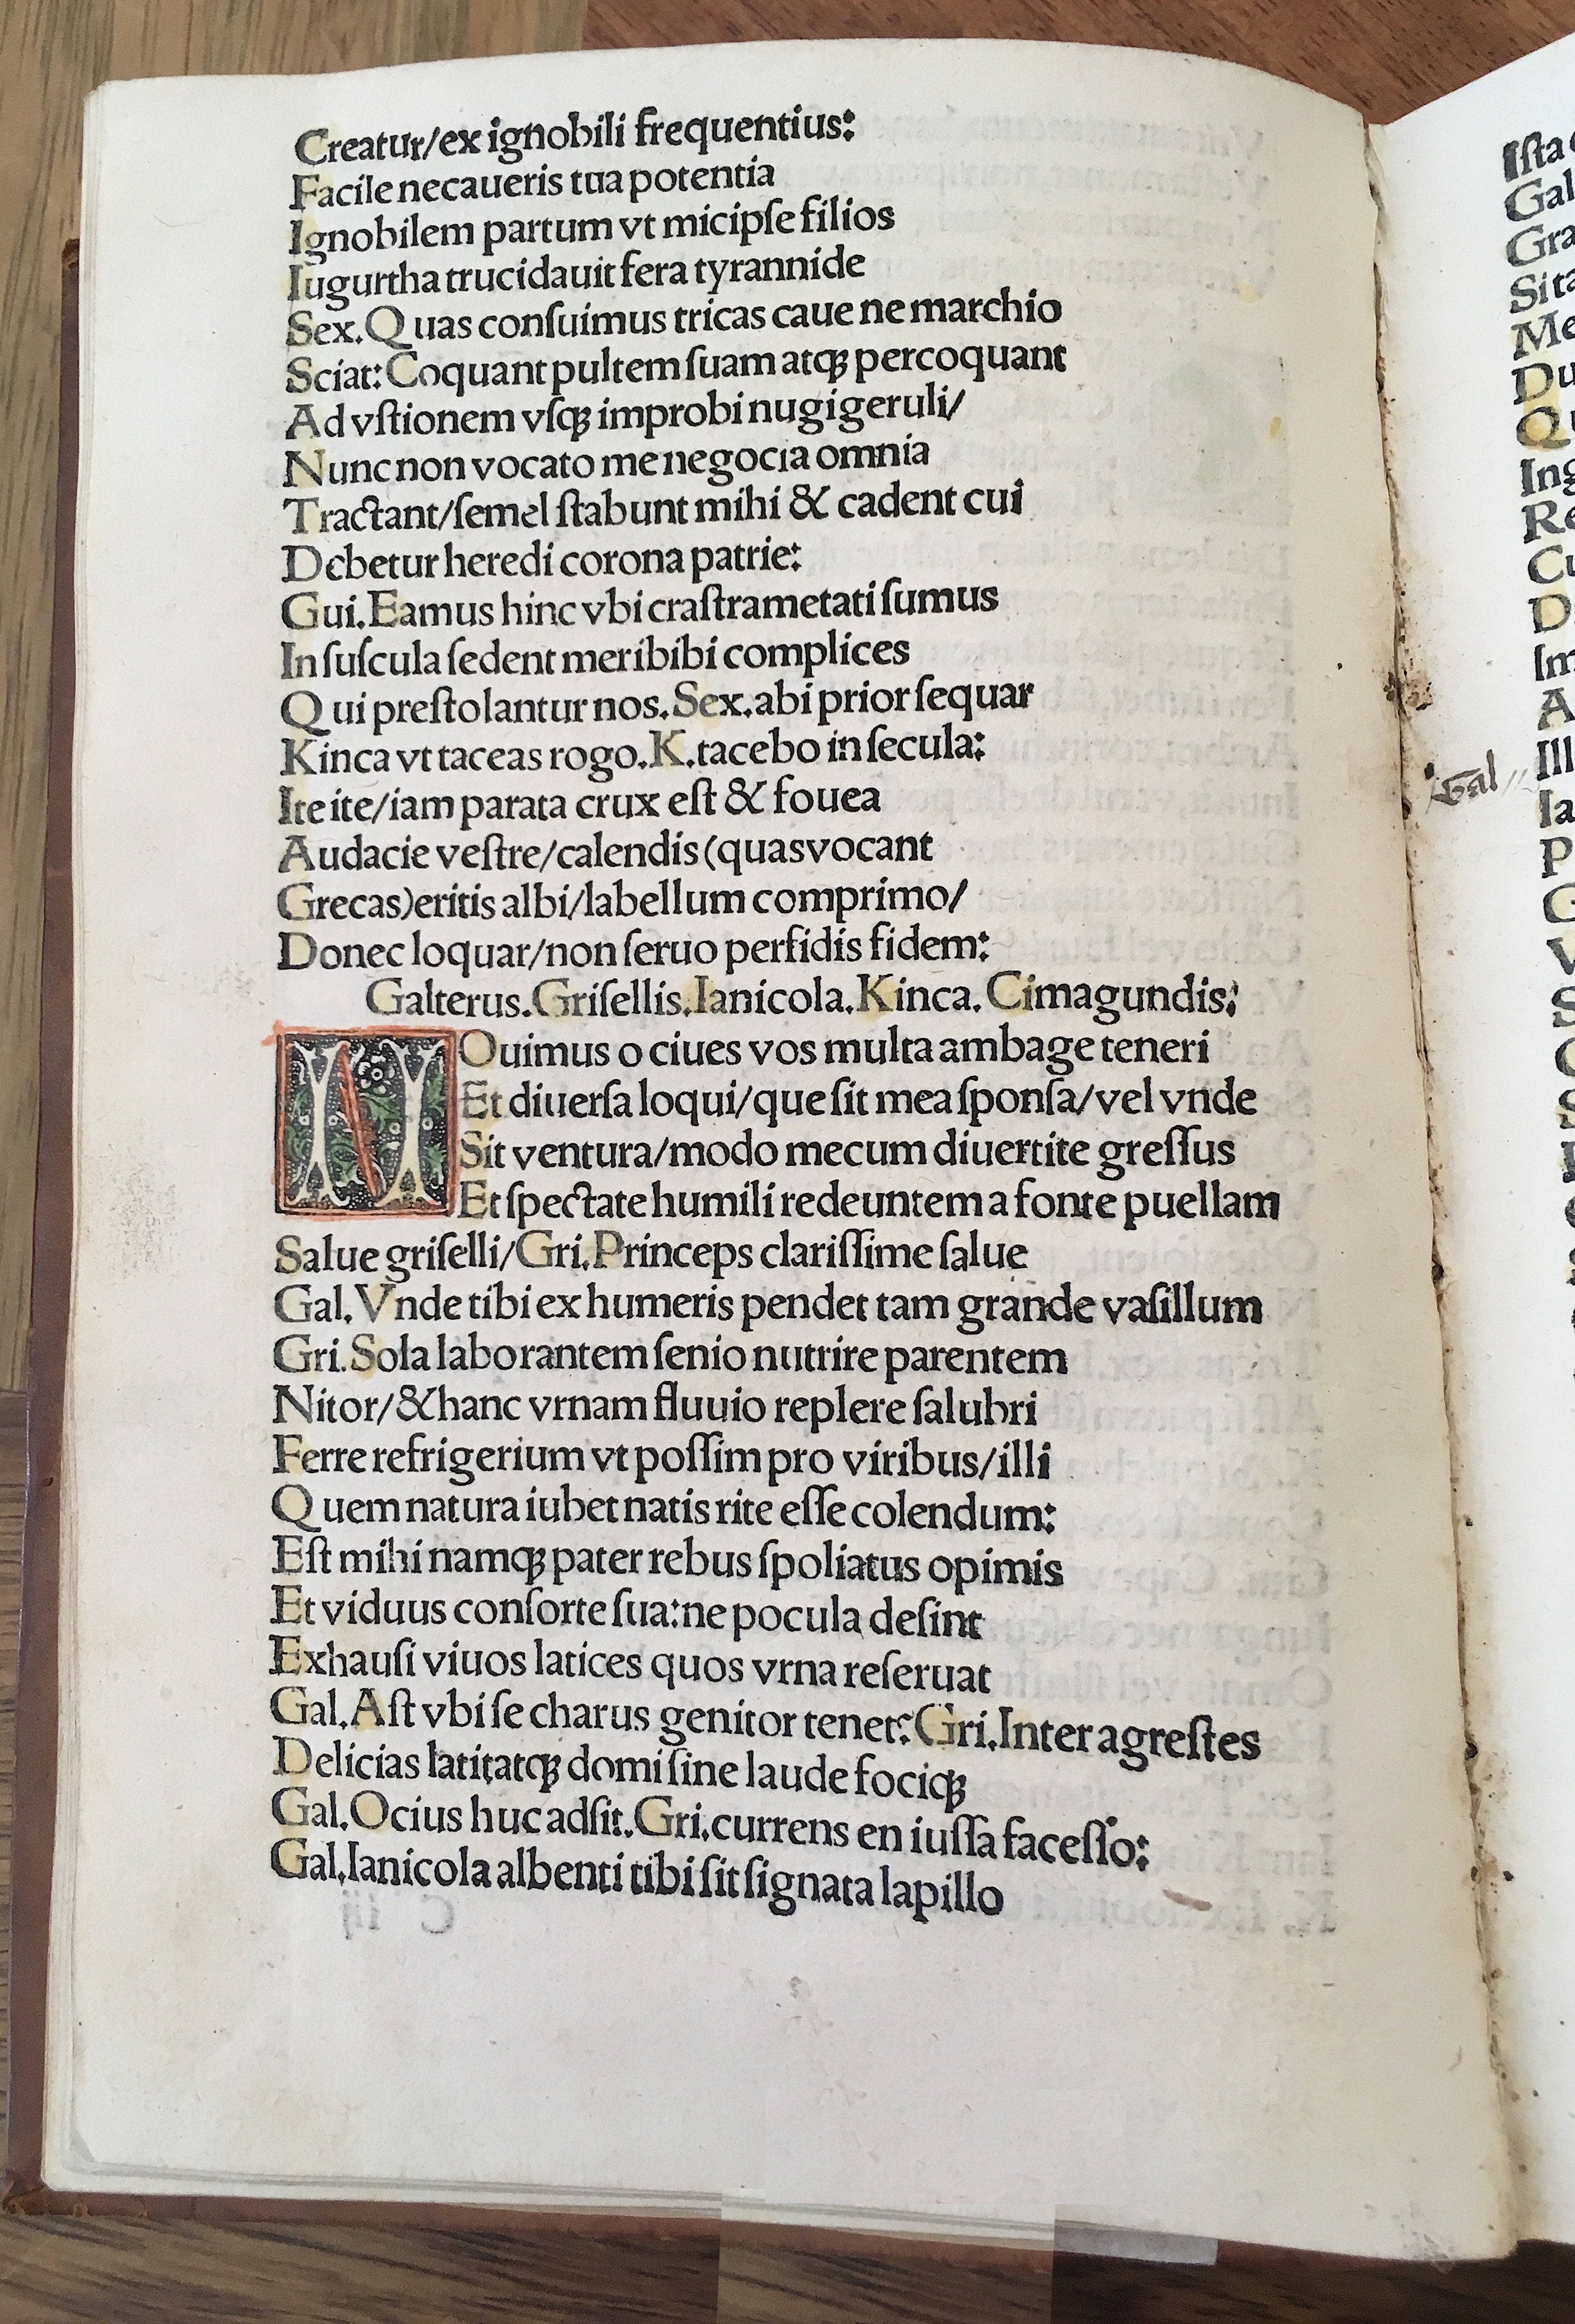 Creatur/ex ignobili frequentius:
Facile necaueris tua potentia
Ignobilem partum vt micipſe filios
Iugurtha trucidauit fera tyrannide
Sex.Quas conſuimus tricas caue ne marchio
Sciat: Coquant pultem ſuam atqꝫ percoquant
Ad vſtionem vſqꝫ improbi nugigeruli/
Nunc non vocato me negocia omnia
Tractant/ſemel ſtabunt mihi & cadent cui
Debetur heredi corona patrie:
Gui.Eamus hinc vbi craſtrametati ſumus
In ſuſcula ſedent meribibi complices
Qui preſtolantur nos.Sex.abi prior ſequar
Kinca vt taceas rogo.K.tacebo in ſecula:
Ite ite/iam parata crux eſt & fouea
Audacie veſtre/calendis (quas vocant
Grecas) eritis albi/labellum comprimo/
Donec loquar/non ſeruo perfidis fidem:
Galterus.Griſellis.Ianicola.Kinca. Cimagundis:
NOuimus o ciues vos multa ambage teneri
Et diuerſa loqui/que ſit mea ſponſa/vel vnde
Sit ventura/modo mecum diuertite greſſus
Et ſpectate humili redeuntem a fonte puellam
Salue griſelli/Gri.Princeps clariſſime ſalue
Gal.Vnde tibi ex humeris pendet tam grande vaſillum
Gri.Sola laborantem ſenio nutrire parentem
Nitor/& hanc vrnam fluuio replere ſalubri
Ferre refrigerium vt poſſim pro viribus/illi
Quem natura iubet natis rite eſſe colendum:
Eſt mihi namqꝫ pater rebus ſpoliatus opimis
Et viduus conſorte ſua:ne pocula deſint
Exhauſi viuos latices quos vrna reſeruat
Gal.Aſt vbi ſe charus genitor tenet:Gri.Inter agreſtes
Delicias latitatqꝫ domi ſine laude fociqꝫ
Gal.Ocius huc adſit.Gri.currens en iuſſa faceſſo:
Gal.Ianicola albenti tibi ſit ſignata lapillo
Gal